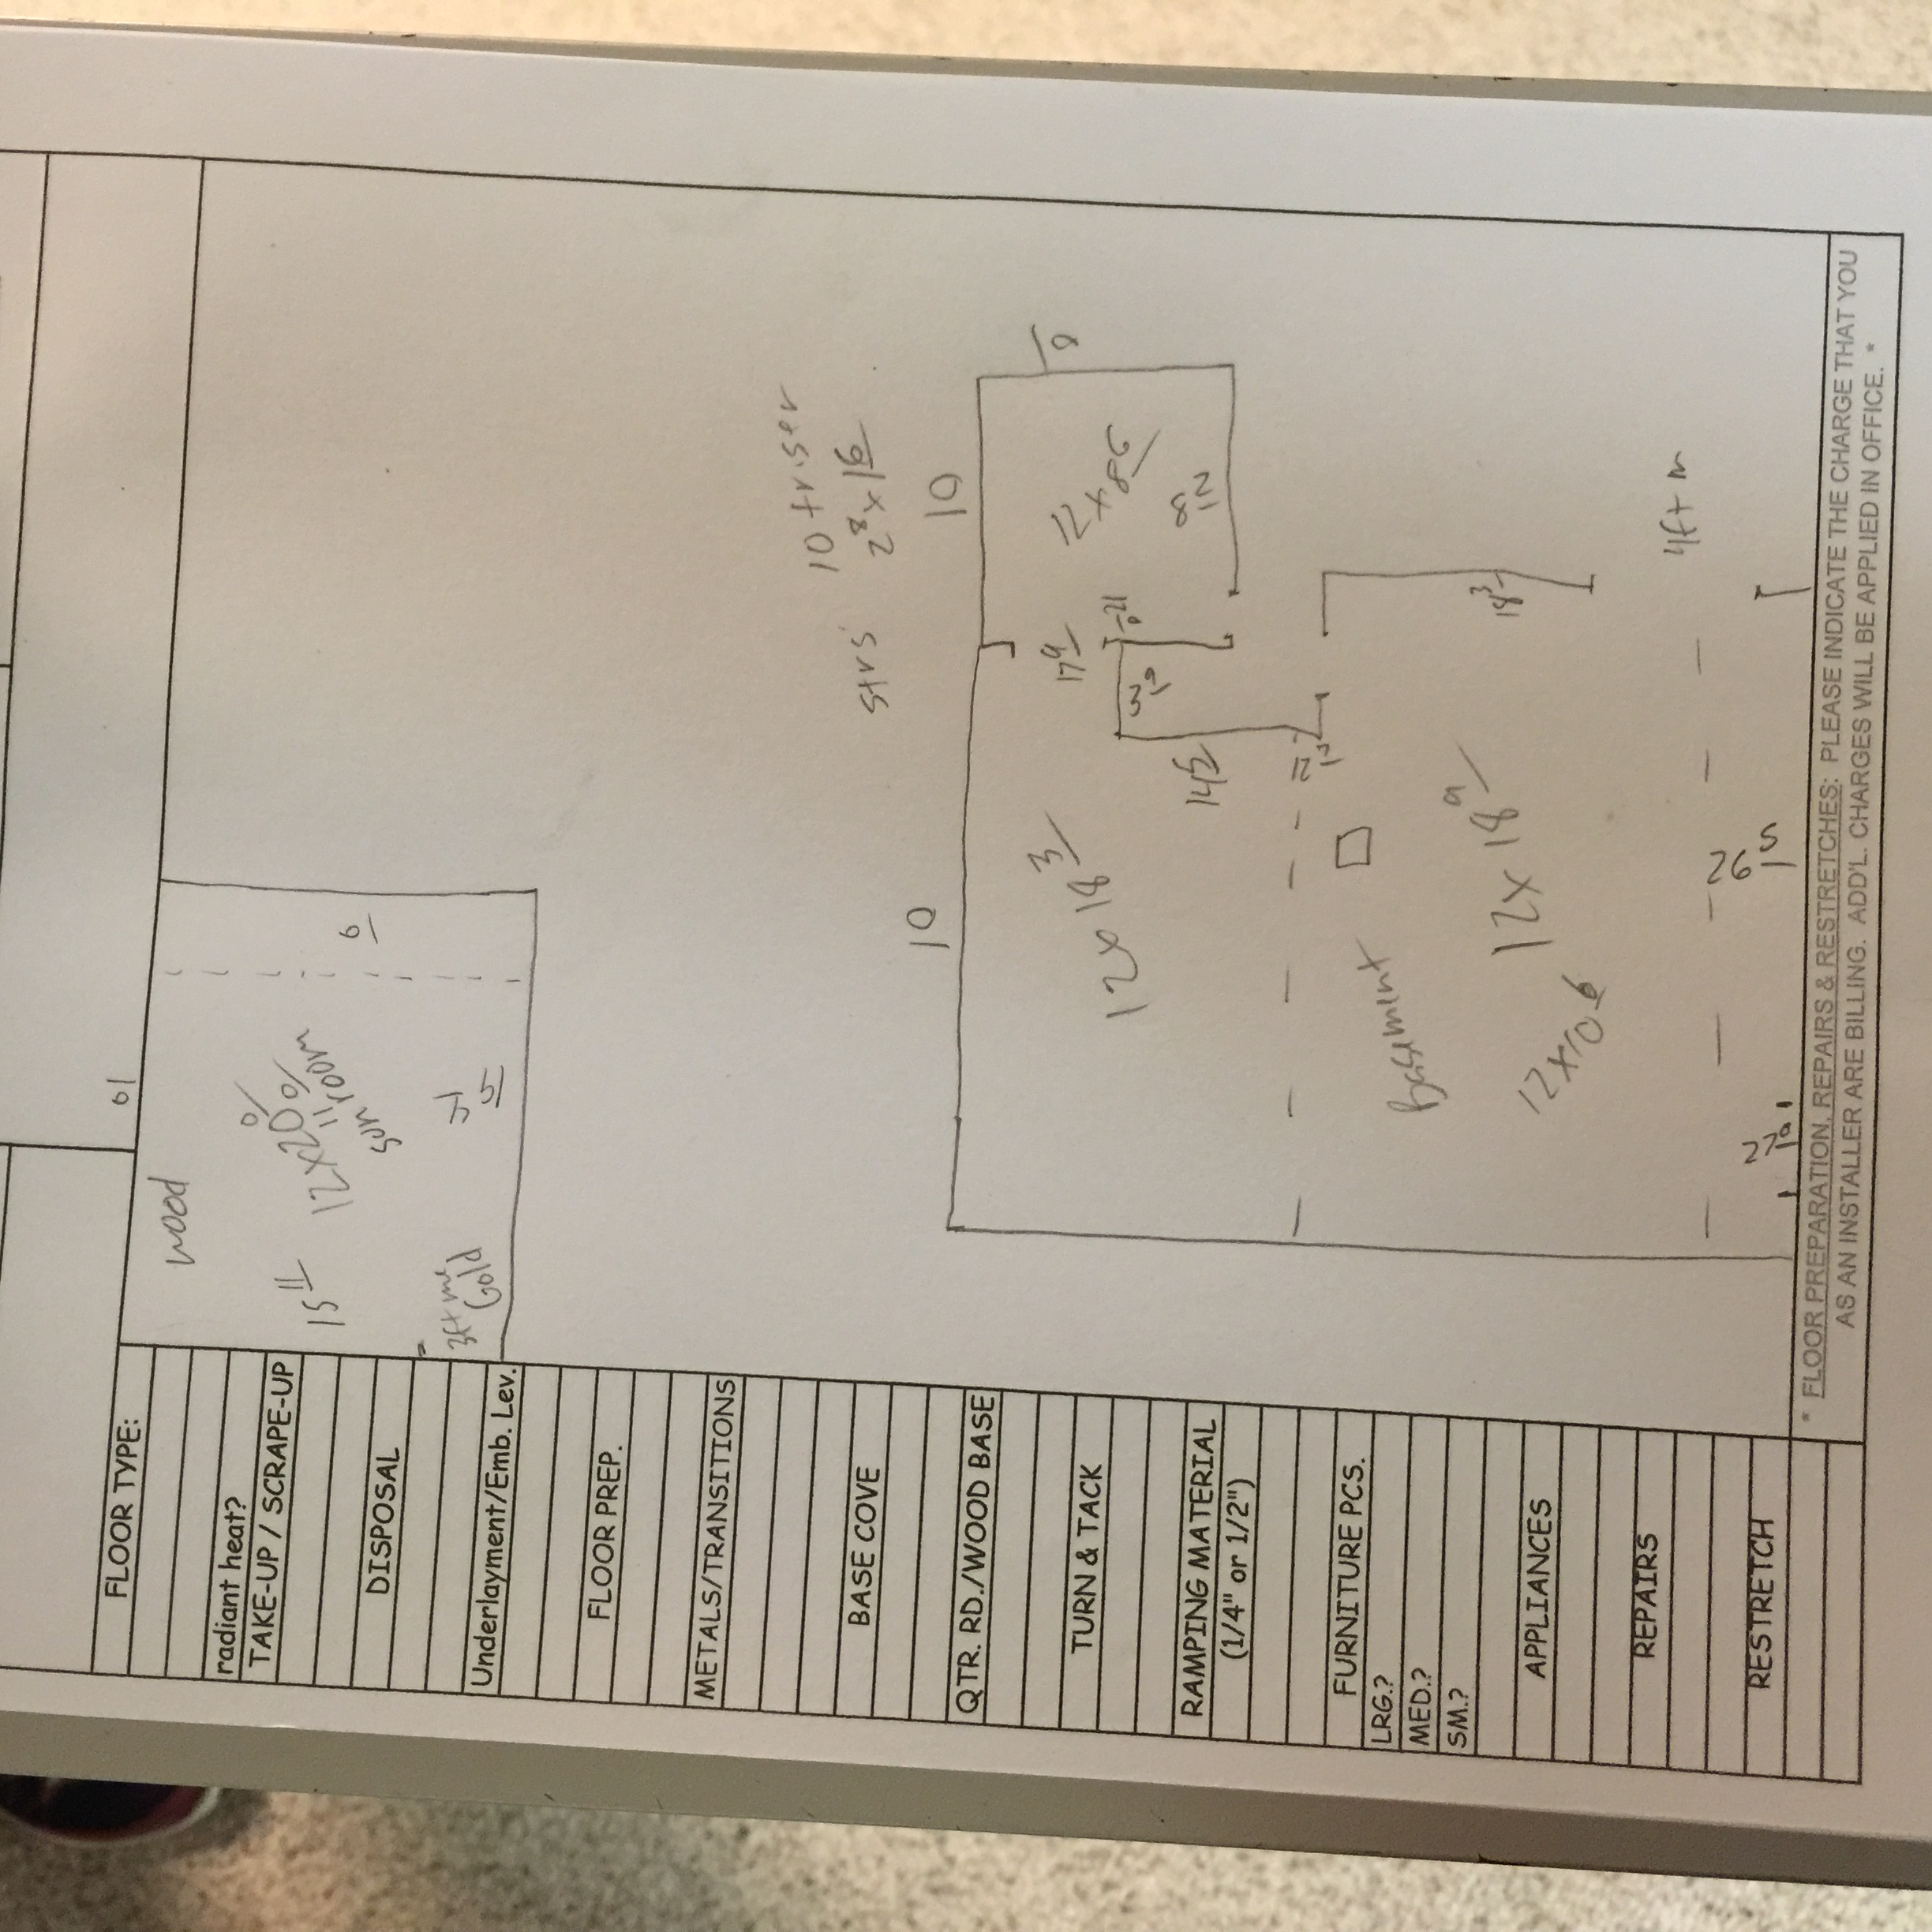 FLOOR TYPE:
radiant heat?
TAKE-UP / SCRAPE-UP
DISPOSAL
Underlayment/Emb. Lev.
FLOOR PREP.
METALS/TRANSITIONS
BASE COVE
QTR. RD./WOOD BASE
TURN & TACK
RAMPING MATERIAL
(1/4" or 1/2")
FURNITURE PCS.
LRG.?
MED.?
SM.?
APPLIANCES
REPAIRS
RESTRETCH
wood
15 11
12x20
sun room
Gold
strs 10 triser
2 8 x 16
10
10
12x18 3
12x86
17 9
3 9
14 5
12 3
Basement
12x18 9
18 3
4ft m
26 5
27 9
* FLOOR PREPARATION, REPAIRS & RESTRETCHES: PLEASE INDICATE THE CHARGE THAT YOU
AS AN INSTALLER ARE BILLING. ADD'L. CHARGES WILL BE APPLIED IN OFFICE. *